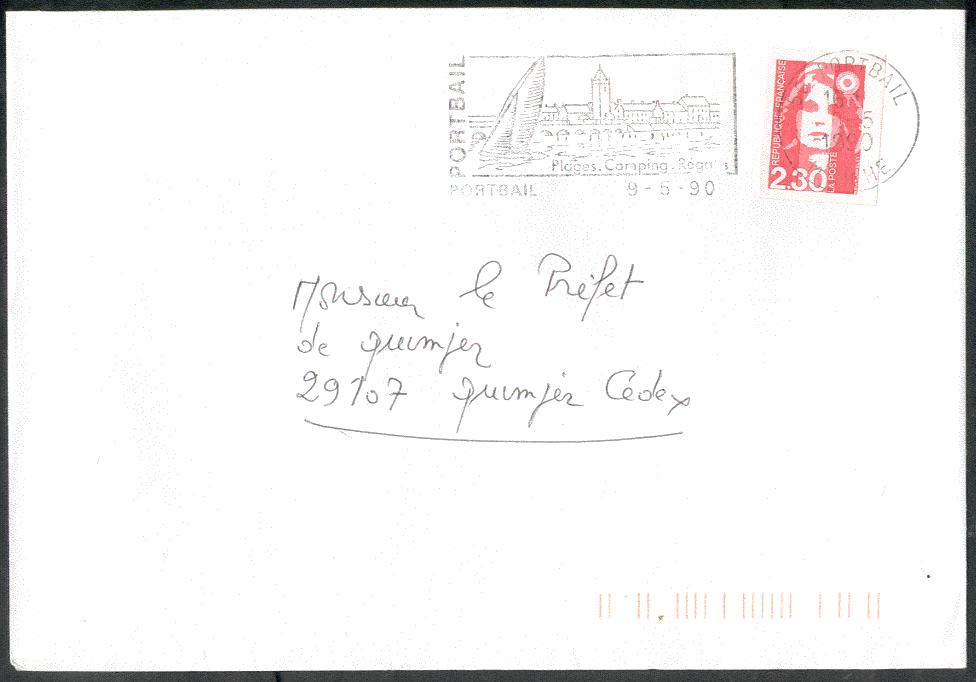 PORTBAIL
Plages. Camping. Régates
PORTBAIL 9-5-90
REPUBLIQUE FRANÇAISE
2.30
LA POSTE
PORTBAIL
16
5
1990
Monsieur le Préfet
de Quimper
29107 Quimper Cedex